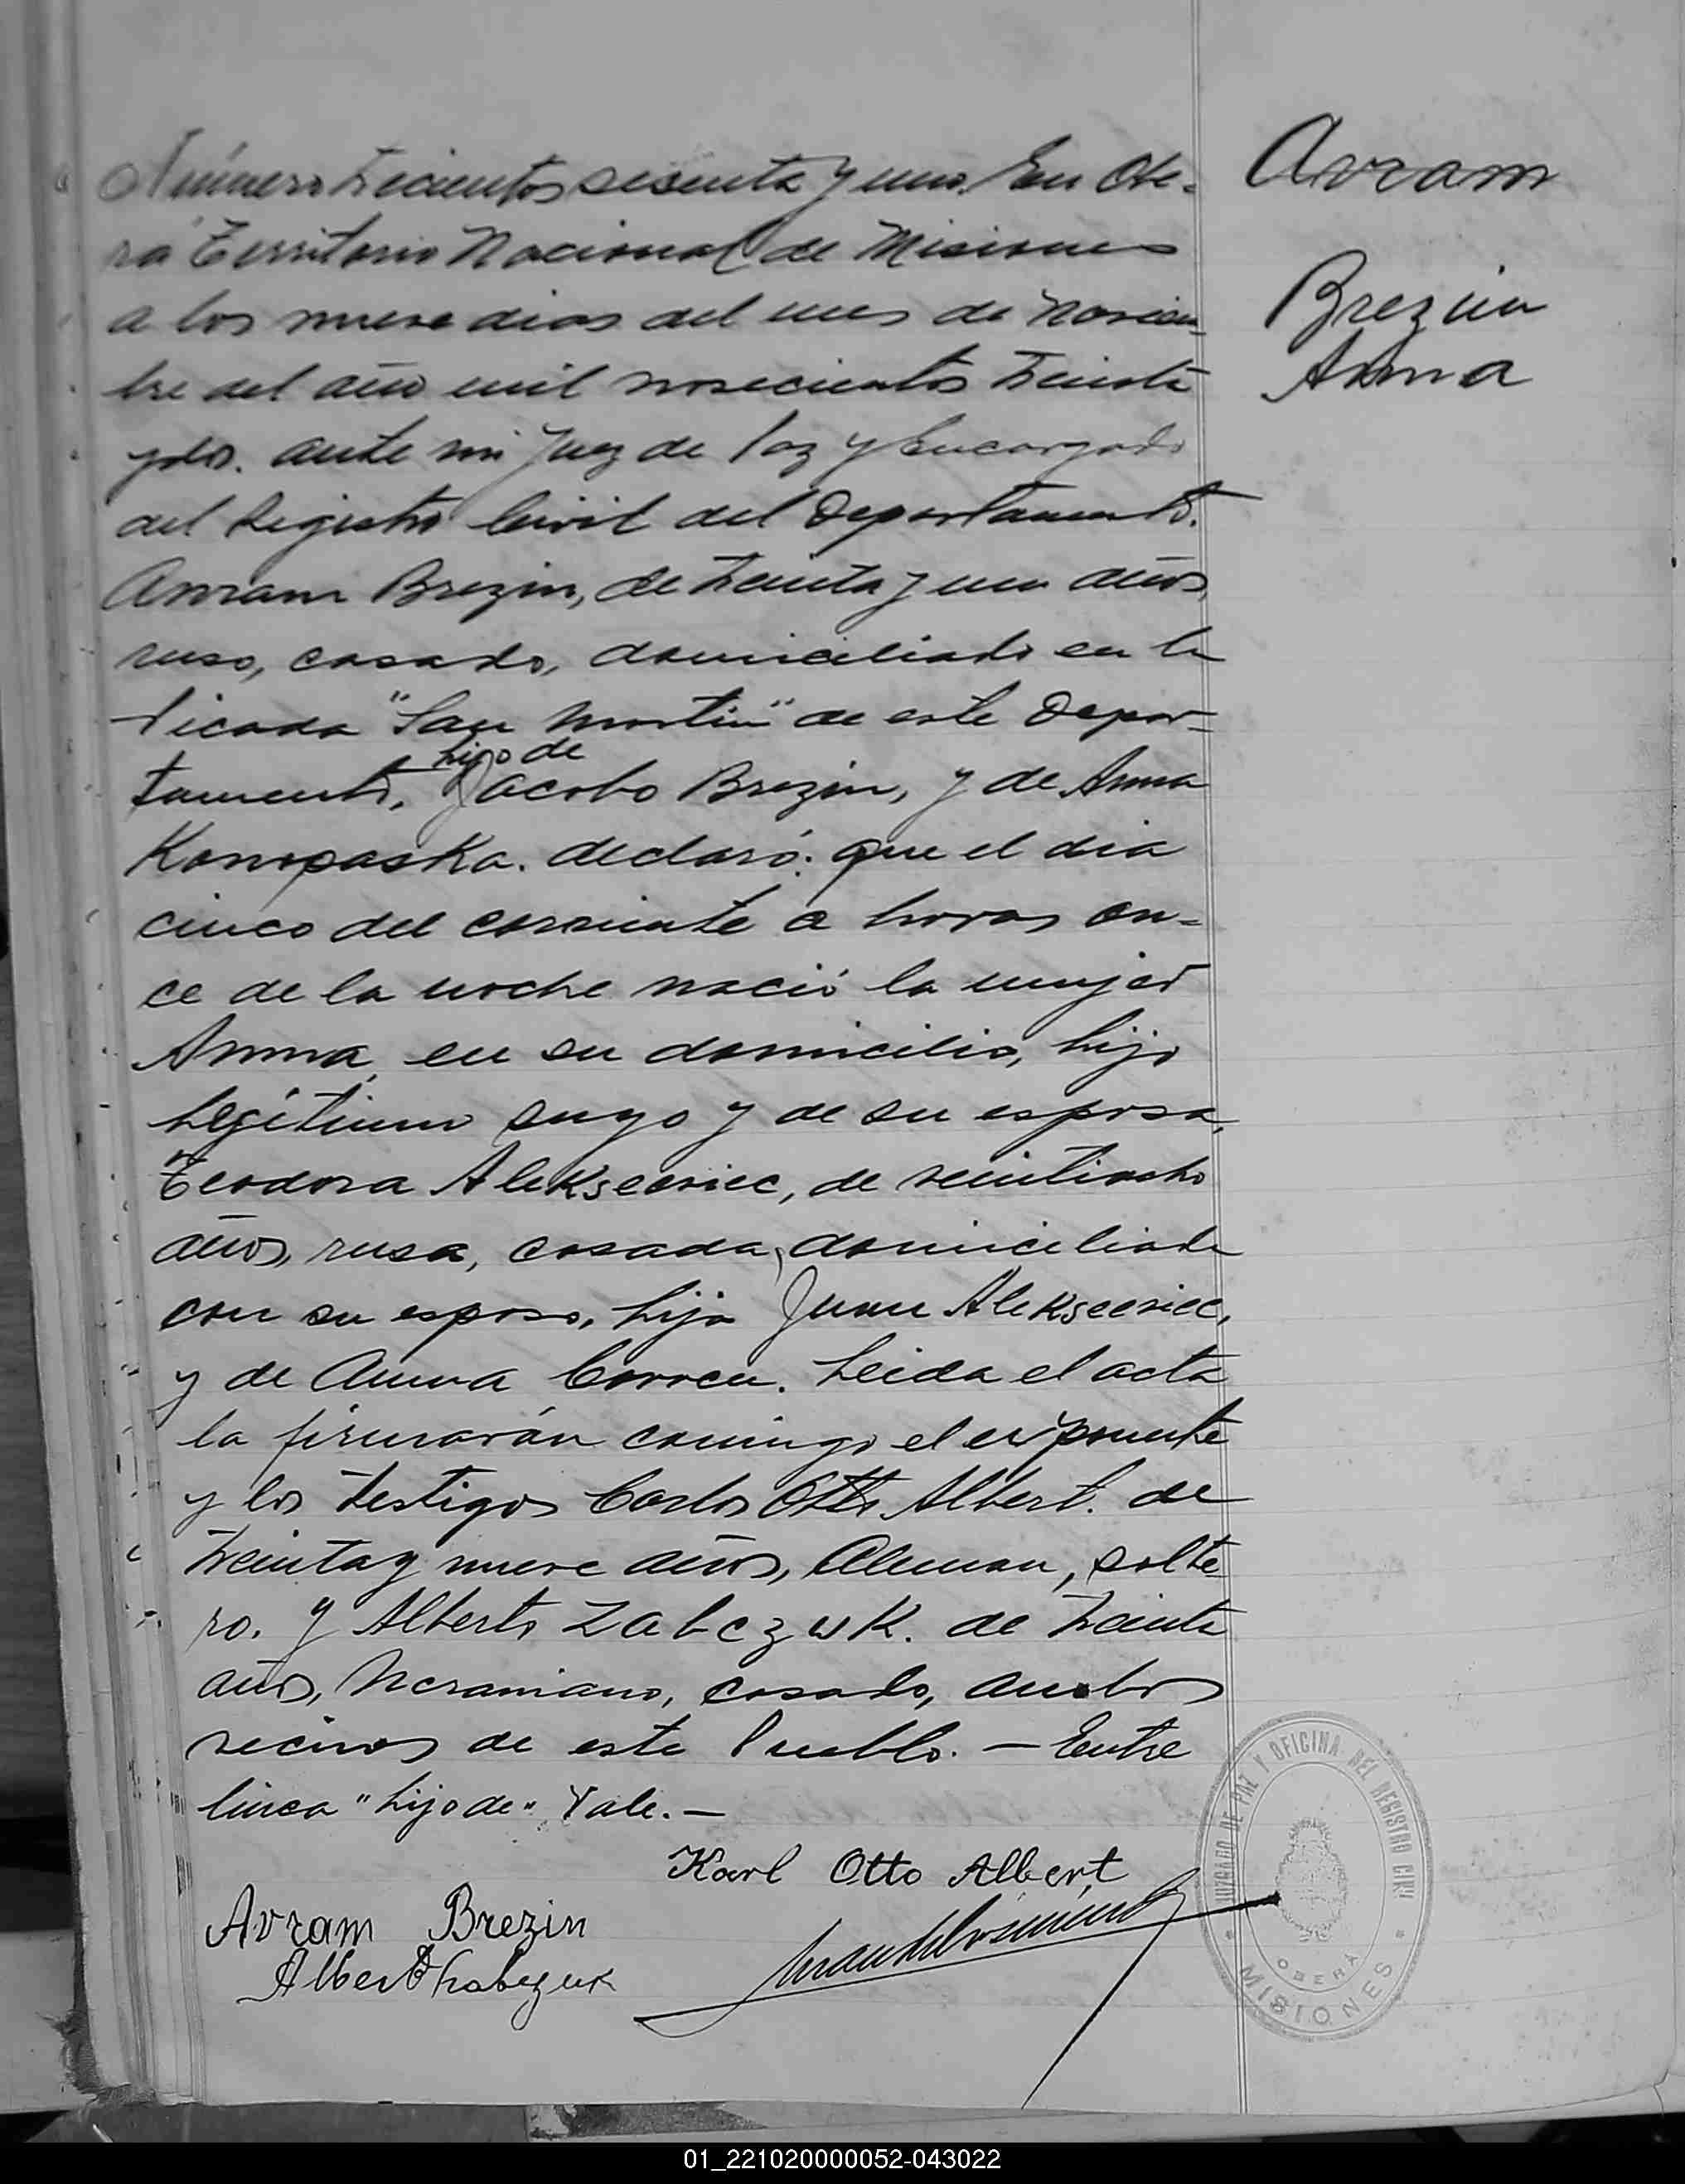 Avram
Brezin
Anna
Número trecientos sesenta y uno. En Obe-
rá Territorio Nacional de Misiones
a los nueve dias del mes de Noviem-
bre del año mil novecientos treinta
y dos. ante mi Juez de Paz y Encargado
del Registro Civil del Departamento.
Avram Brezin, de treinta y un años,
ruso, casado, domiciliado en la
Picada "San Martin" de este Depar-
hijo de
tamento, Jacobo Brezin, y de Anna
Konopaska. declaró: que el dia
cinco del corriente a horas on-
ce de la noche nació la mujer
Anna, en su domicilio, hijo
legítimo suyo y de su esposa,
Teodora Alekseeviec, de veintiocho
años, rusa, casada, domiciliada
con su esposo, hija Juan Alekseeviec,
y de Anna. Leida el acta
la firmarón conmigo el exponente
y los testigos Carlos Otto Albert. de
treinta y nueve años, Aleman, solte-
ro. y Alberto Zabczuk. de treinta
años, Ucraniano, casado, ambos
vecinos de este Pueblo. — Entre
linea "hijo de" Vale. —
Karl Otto Albert
Avram Brezin
Albert
JUZGADO DE PAZ Y OFICINA DEL REGISTRO CIVIL
OBERÁ
MISIONES
01_221020000052-043022